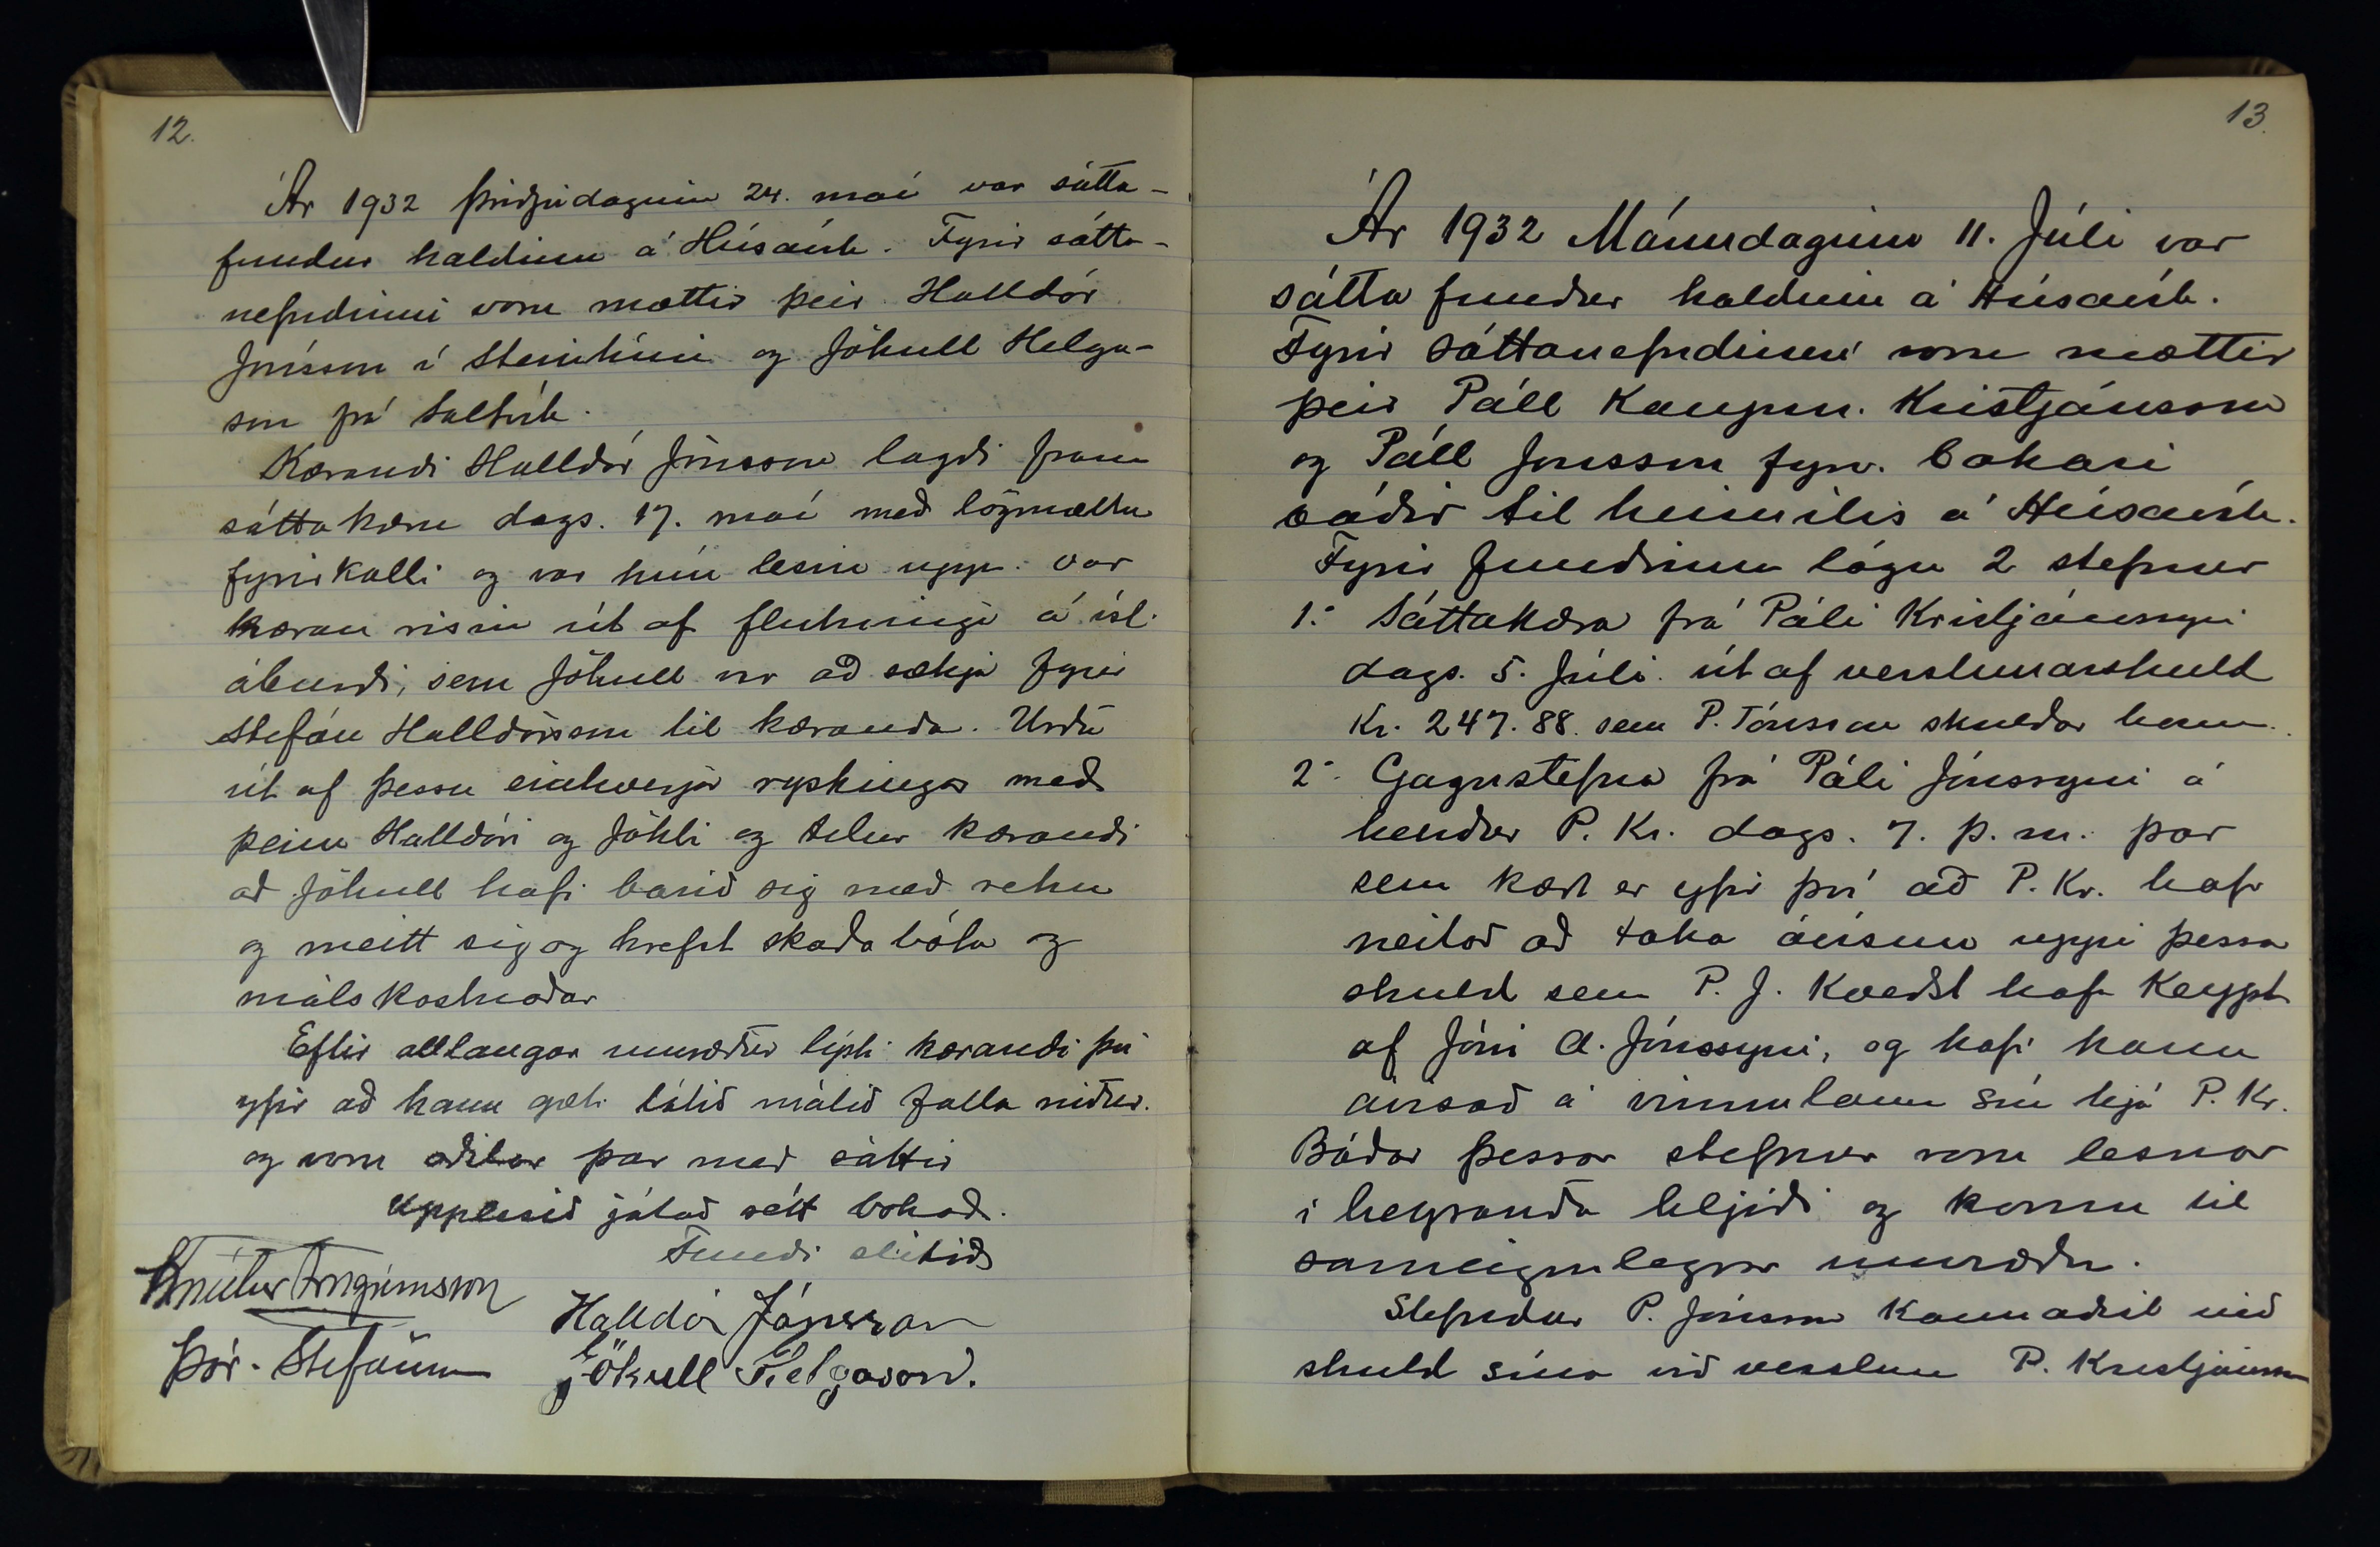 12.
Ár 1932 þriðjudaginn 24. maí var sátta-
fundur haldinn á Húsavík. Fyrir sátta-
nefndinni voru mættir þeir Halldór
Jónsson í Steinhúsi og Jökull Helga-
son frá Saltvík.
Kærandi Halldór Jónsson lagði fram
sáttakæru dags. 17. maí með lögmæltu
fyrirkalli og var hún lesin upp. Var
kæran risin út af flutningi á ísl.
áburði, sem Jökull var að sækja fyrir
Stefán Halldórsson til kæranda. Urðu
út af þessu einhverjar ryskingar með
þeim Halldóri og Jökli og telur kærandi
að Jökull hafi barið sig með reku
og meitt sig og krefst skaðabóta og
málskostnaðar
Eftir alllangar umræður lýsti kærandi því
yfir að hann gæti látið málið falla niður.
og voru aðilar þar með sáttir
Upplesið játað rétt bókað.
Fundi slitið
Knútur Arngrímsson
Halldór Jónsson
Þór. Stefánsson
Jökull Helgason.
13.
Ár 1932 Mánudaginn 11. Júlí var
sátta fundur haldinn á Húsavík.
Fyrir sáttanefndinni voru mættir
þeir Páll Kaupm. Kristjánsson
og Páll Jónsson fyrv. bakari
báðir til heimilis á Húsavík.
Fyrir fundinum lágu 2 stefnur
1. Sáttakæra frá Páli Kristjánssyni
dags. 5. Júlí. út af verslunarskuld
Kr. 247.88. sem P. Jónsson skuldar honum.
2. Gagnstefna frá Páli Jónssyni á
hendur P. Kr. dags. 7. þ.m. þar
sem kært er yfir því að P. Kr. hafi
neitað að taka ávísun uppí þessa
skuld sem P. J. kveðst hafa keypt
af Jóni A. Jónssyni, og hafi hann
ávísað á vinnulaun sín hjá P. Kr.
Báðar þessar stefnur voru lesnar
í heyranda hljóði og komu til
sameiginlegrar umræðu.
Stefndur P. Jónsson kannaðist við
skuld sína við verslun P. Kristjánssonar